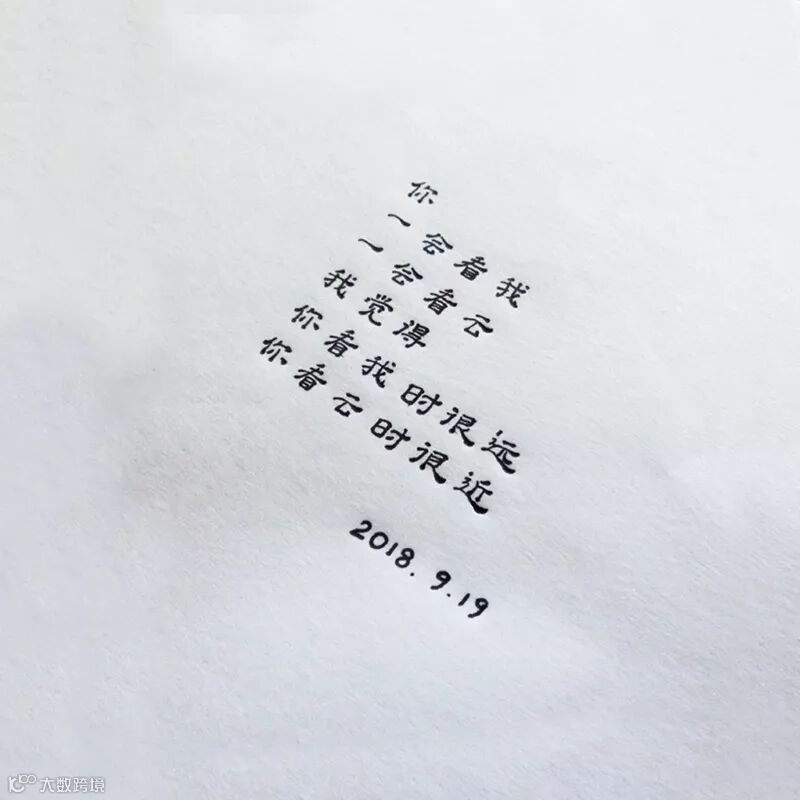 你
一会看我
一会看云
我觉得
你看我时很远
你看云时很近
2018.9.19
大数跨境